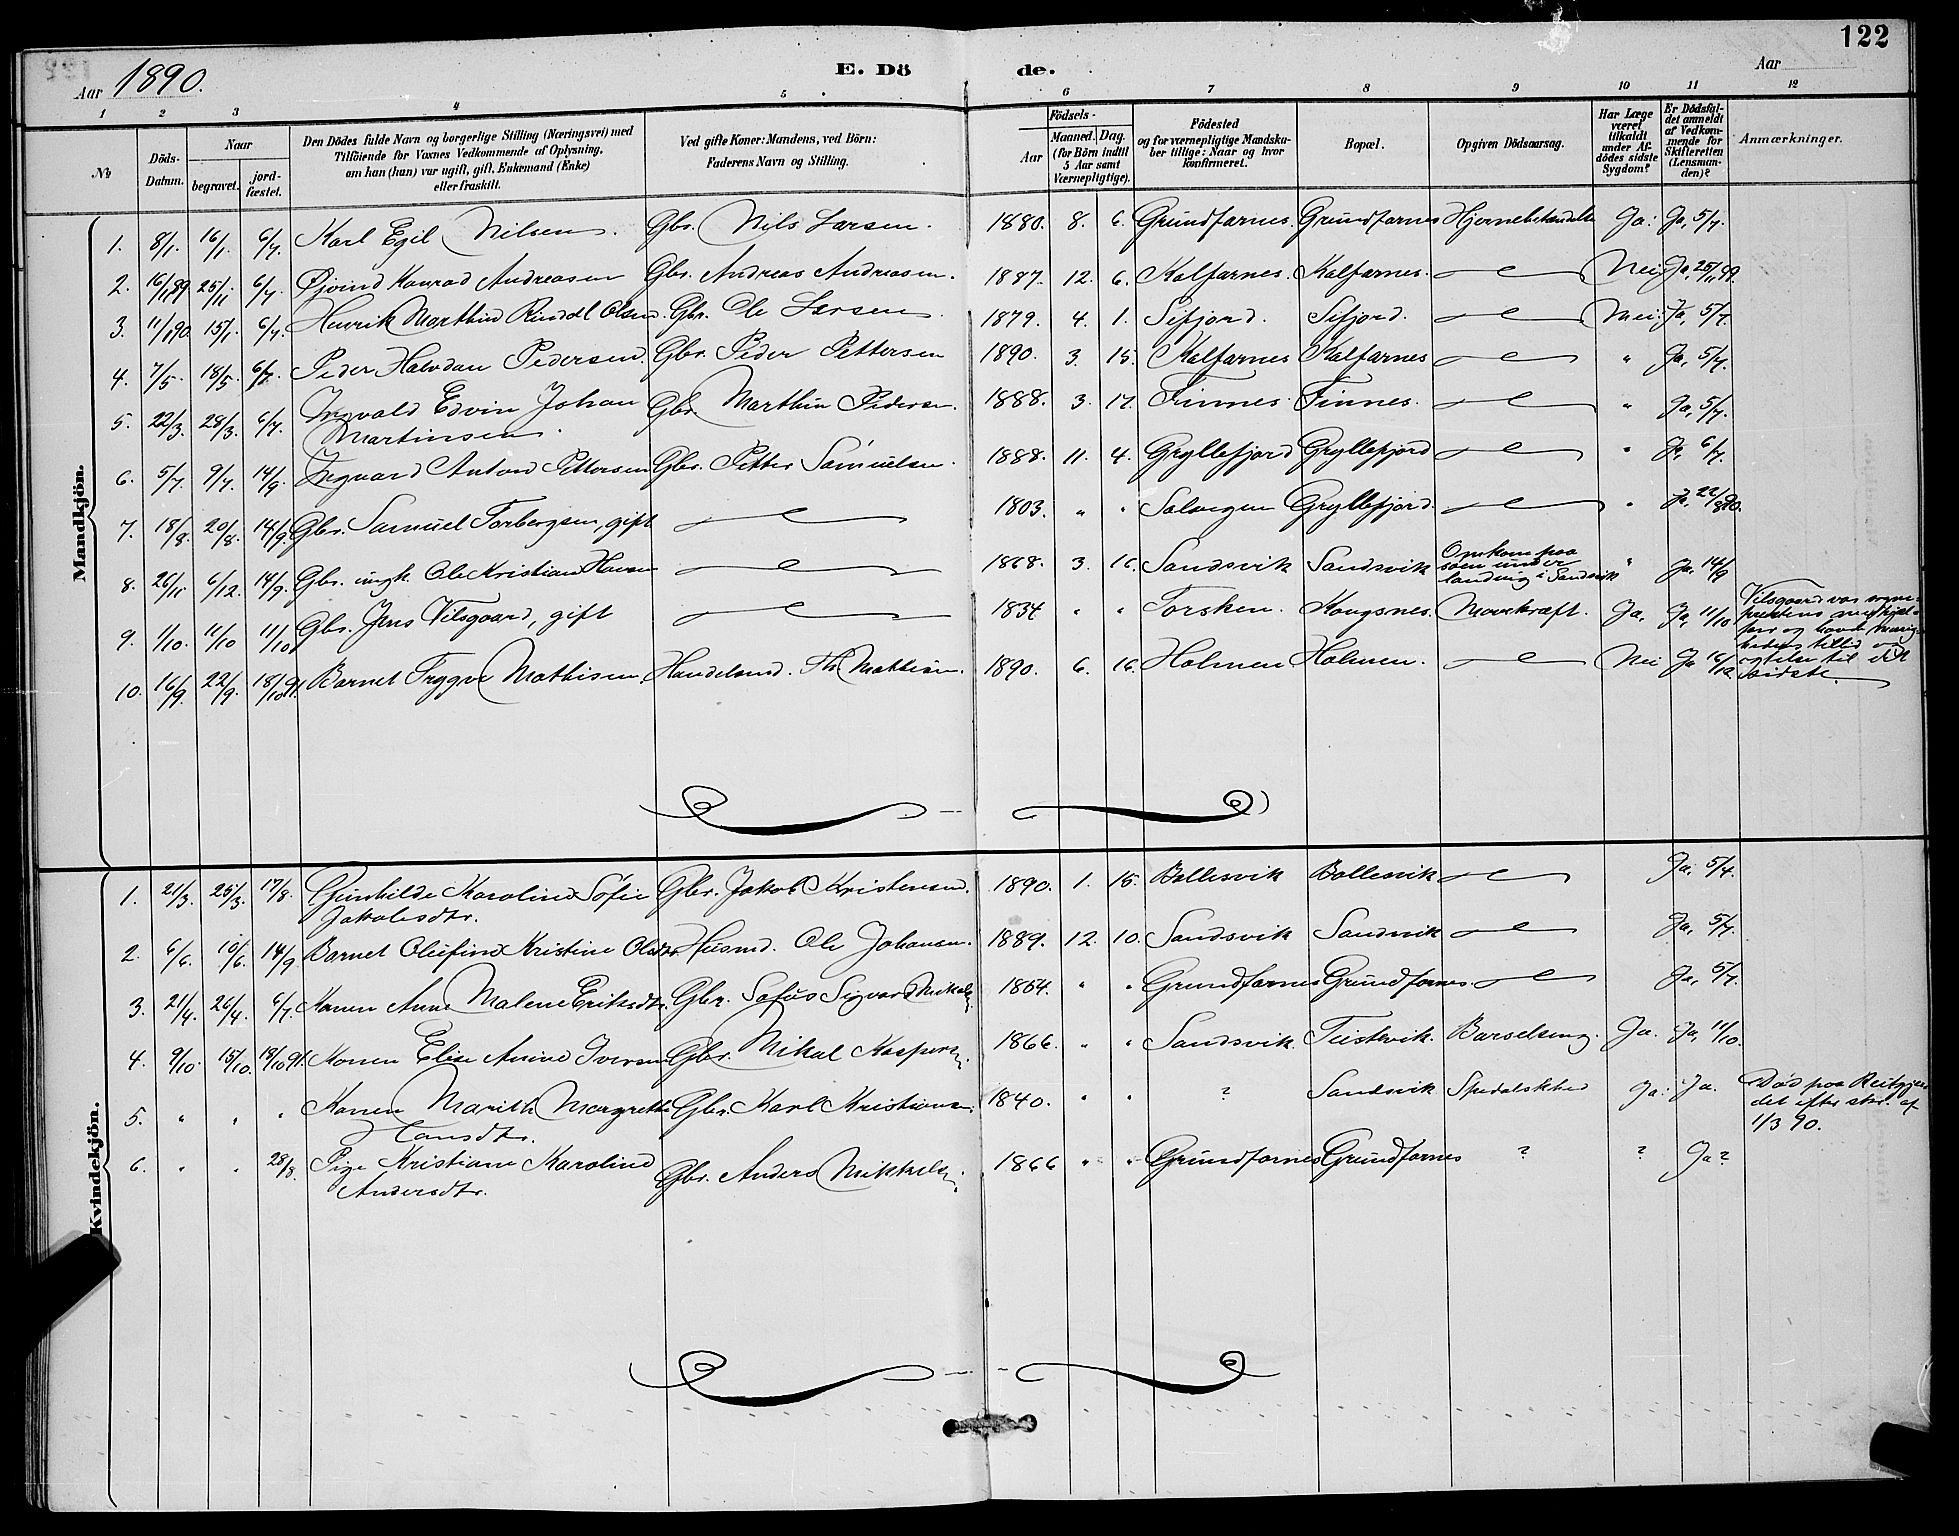 122
Aar 1890.
E. Dö de.
Aar
1 2 3 4 5 6 7 8 9 10 11 12
No
Döds-Datum.
Naar
begravet.
jord-fæstet.
Den Dödes fulde Navn og borgerlige Stilling (Næringsvei) med
Tilföiende for Voxnes Vedkommende af Oplysning,
om han (hun) var ugift, gift, Enkemand (Enke)
eller fraskilt.
Ved gifte Koner: Mandens, ved Börn:
Faderens Navn og Stilling.
Födsels-
Aar
Maaned. Dag.
(for Börn indtil
5 Aar samt
Værnepligtige).
Födested
og for værnepligtige Mandska-
ber tillige: Naar og hvor
konfirmeret.
Bopæl.
Opgiven Dödsaarsag.
Har Læge
været
tilkaldt
under Af-
dödes sidste
Sygdom?
Er Dödsfal-
det anmeldt
af Vedkom-
mende for
Skifteretten
(Lensman-
den)?
Anmærkninger.
Mandkjön.
1. 8/1. 16/1. 6/7. Karl Egil Nilsen. Gbr. Nils Larsen. 1880. 8. 6. Grundfarnes. Grundfarnes Hjernebetændelse Ja. Ja, 5/7.
2. 16/11 89. 25/11 6/7. Øjvind Konrad Andreasen Gbr. Andreas Andreasen. 1887. 12. 6. Kalfarnes. Kalfarnes. Nei Ja, 25/11 89.
3. 11/1 90. 15/1. 6/7. Henrik Marthin Rindal Olsen. Gbr. Ole Larsen. 1879. 4. 1. Sifjord. Sifjord. Nei. Ja, 5/7.
4. 7/5. 18/5. 6/7. Peder Halvdan Pedersen. Gbr. Peder Pettersen 1890. 3. 15. Kalfarnes Kalfarnes " Ja, 5/7.
5. 22/3. 28/3. 6/7. Ingvald Edvin Johan Gbr. Marthin Pedersen. 1888. 3. 17. Finnes. Finnes. " Ja, 5/7.
Martinsen.
6. 5/7. 9/7. 14/9. Ingvard Anton Pettersen Gbr. Petter Samuelsen. 1888. 11. 4. Gryllefjord Gryllefjord " Ja, 6/7.
7. 18/8. 20/8. 14/9. Gbr. Samuel Torbergsen, gift 1803. " " Salvegen Gryllefjord. " Ja, 22/8 90.
8. 26/11 6/12. 14/9. Gbr. ungk. Ole Kristian Hansen 1868. 3. 16. Sandsvik Sandsvik Omkom paa
søen under
landing i Sandsvik " Ja, 14/9
9. 1/10. 11/10 11/10 Gbr. Jens Vilsgaard, gift 1834 " " Torsken. Kongsnes. Mavekræft. Ja, Ja, 11/10 Vilsgaard var sogne-
prestens medhjæl-
per og havde menig-
hedens tillid
til det
sidste.
10. 16/9. 22/9. 18/10 91. Barnet Trygve Mathisen. Handelsmd. Th. Mathisen. 1890. 6. 16. Holmen Holmen. Nei Ja 16/12
Kvindekjön.
1. 21/3. 25/3. 17/8. Gunhilde Karoline Sofie Gbr. Jakob Kristensen. 1890. 1. 15. Ballesvik Ballesvik Ja, 5/7.
Jakobsdtr.
2. 6/6. 10/6. 14/9. Barnet Olufine Kristine Olsdtr. Husmd. Ole Johansen. 1889. 12. 10. Sandsvik Sandsvik Ja, 5/7.
3. 21/4. 26/4. 6/7. Konen Anne Malene Eriksdtr. Gbr. Sofus Sigvard Mikalsen. 1864. " " Grundfarnes Grundfarnes. Ja, 5/7.
4. 9/10. 15/10. 19/10 91. Konen Elise Anine Iversen Gbr. Mikal Kaspersen. 1866. " " Sandsvik. Teistevik. Barselseng. Ja. Ja, 11/10.
5. " " " Konen Marith Margrethe Gbr. Karl Kristiansen. 1840. " " ? Sandsvik Spedalskhed Ja. Ja. Død paa Reitgjer-
det efter skr. af
1/3 90.
Hansdtr.
6. " " 28/8. Pige Kristiane Karoline Gbr. Anders Mikkelsen. 1866 " " Grundfarnes Grundfarnes ? ? Ja?
Andersdtr.